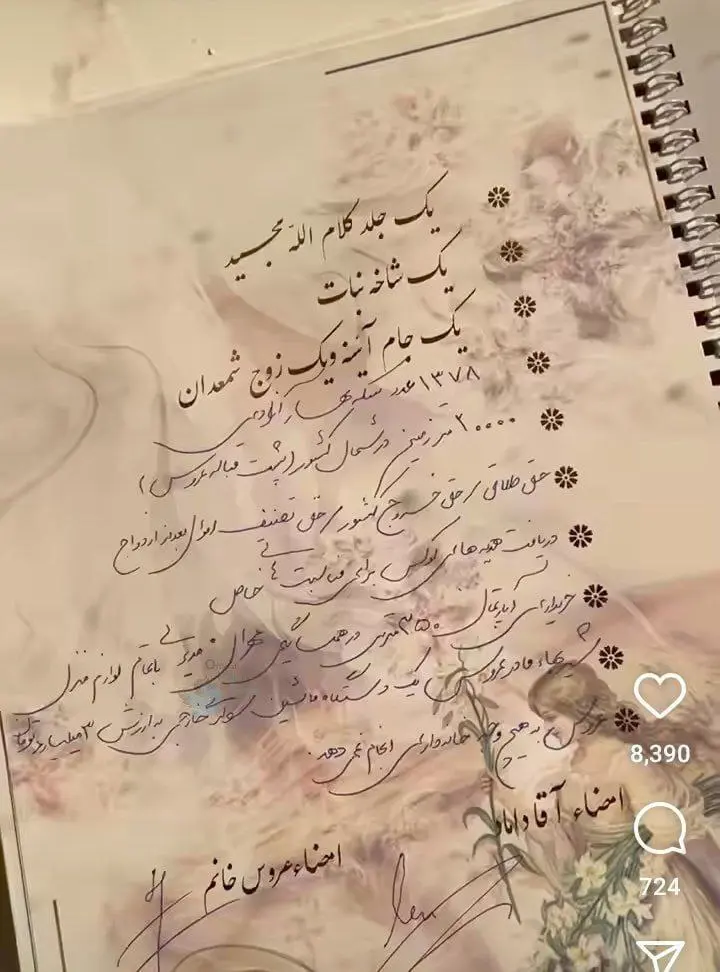 یک جلد کلام الله مجید
یک شاخه نبات
یک جام آئینه و یک زوج شمعدان
۱۳۷۸ عدد سکه بهار آزادی
۲۰۰۰۰ متر زمین در شمال کشور (پشت قباله عروس)
حق طلاق / حق خروج کشور / حق تصنیف اموال بعد از ازدواج
دریافت هدیه های لوکس برای مناسبت های خاص
خریداری آپارتمان ۳۵۰ متری در همسایگی مدیر با تمام لوازم منزل
شیربهاء مادر عروس یک دستگاه ماشین سواری خارجی به ارزش ۳ میلیارد تومان
عروس به هیچ وجه خانه داری انجام نمی دهد.
امضاء آقا داماد
امضاء عروس خانم
8,390
724